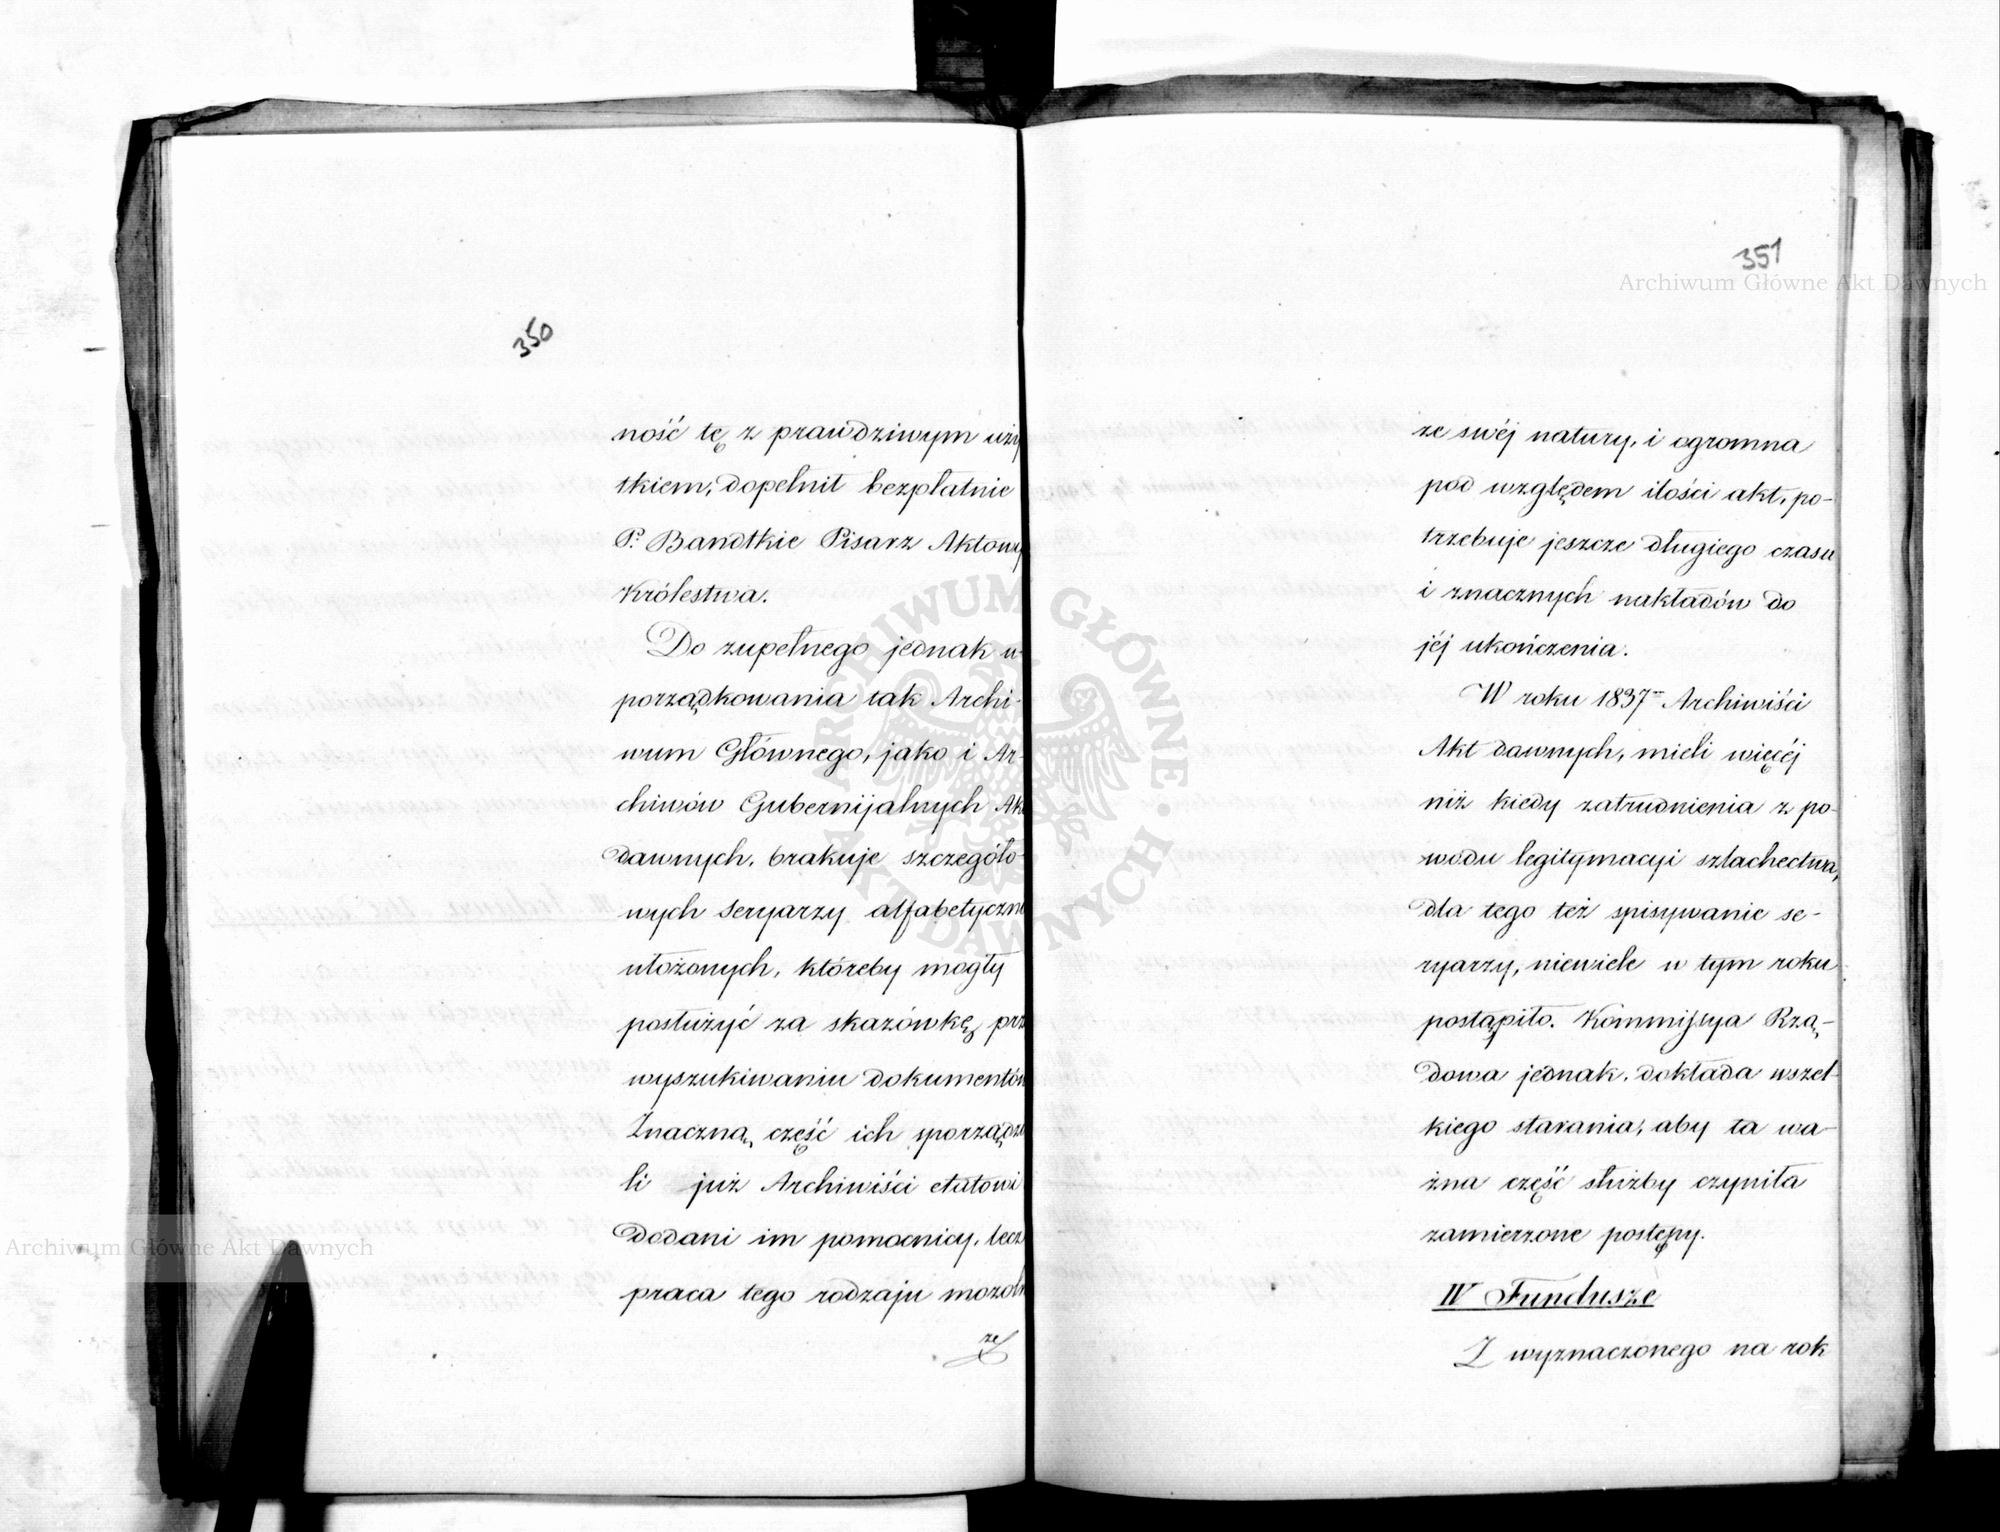 350
ność tę z prawdziwym uży
tkiem, dopełnił bezpłatnie
P. Bandtkie Pisarz Aktowy
Królestwa.
Do zupełnego jednak u-
porządkowania tak Archi-
wum Głównego, jako i Ar-
chiwów Gubernijalnych Ak
dawnych, brakuje szczegóło-
wych Seryarzy alfabetyczni
ułożonych, któreby mogły
posłużyć za skazówkę prz
wyszukiwaniu dokumentów
Znaczną część ich sporządzi
li już Archiwiści etatowi
Dodani im pomocnicy, lecz
praca tego rodzaju mozoln
ze
351
ze swéj natury, i ogromna
pod względem ilości akt, po-
trzebuje jeszcze długiego czasu
i znacznych nakładów do
jéj ukończenia.
W roku 1837m Archiwiści
Akt dawnych, mieli więcéj
niż kiedy zatrudnienia z po-
wodu legitymacyi szlachectwa,
dla tego też spisywanie se-
ryarzy, niewiele w tym roku
postąpiło. Kommissya Rzą-
dowa jednak, dokłada wszel-
kiego starania, aby ta wa-
żna część służby czyniła
zamierzone postępy.
IV Fundusze
Z wyznaczonego na rok
Archiwum Główne Akt Dawnych
Archiwum Główne Akt Dawnych
ARCHIWUM GŁÓWNE · AKT DAWNYCH ·